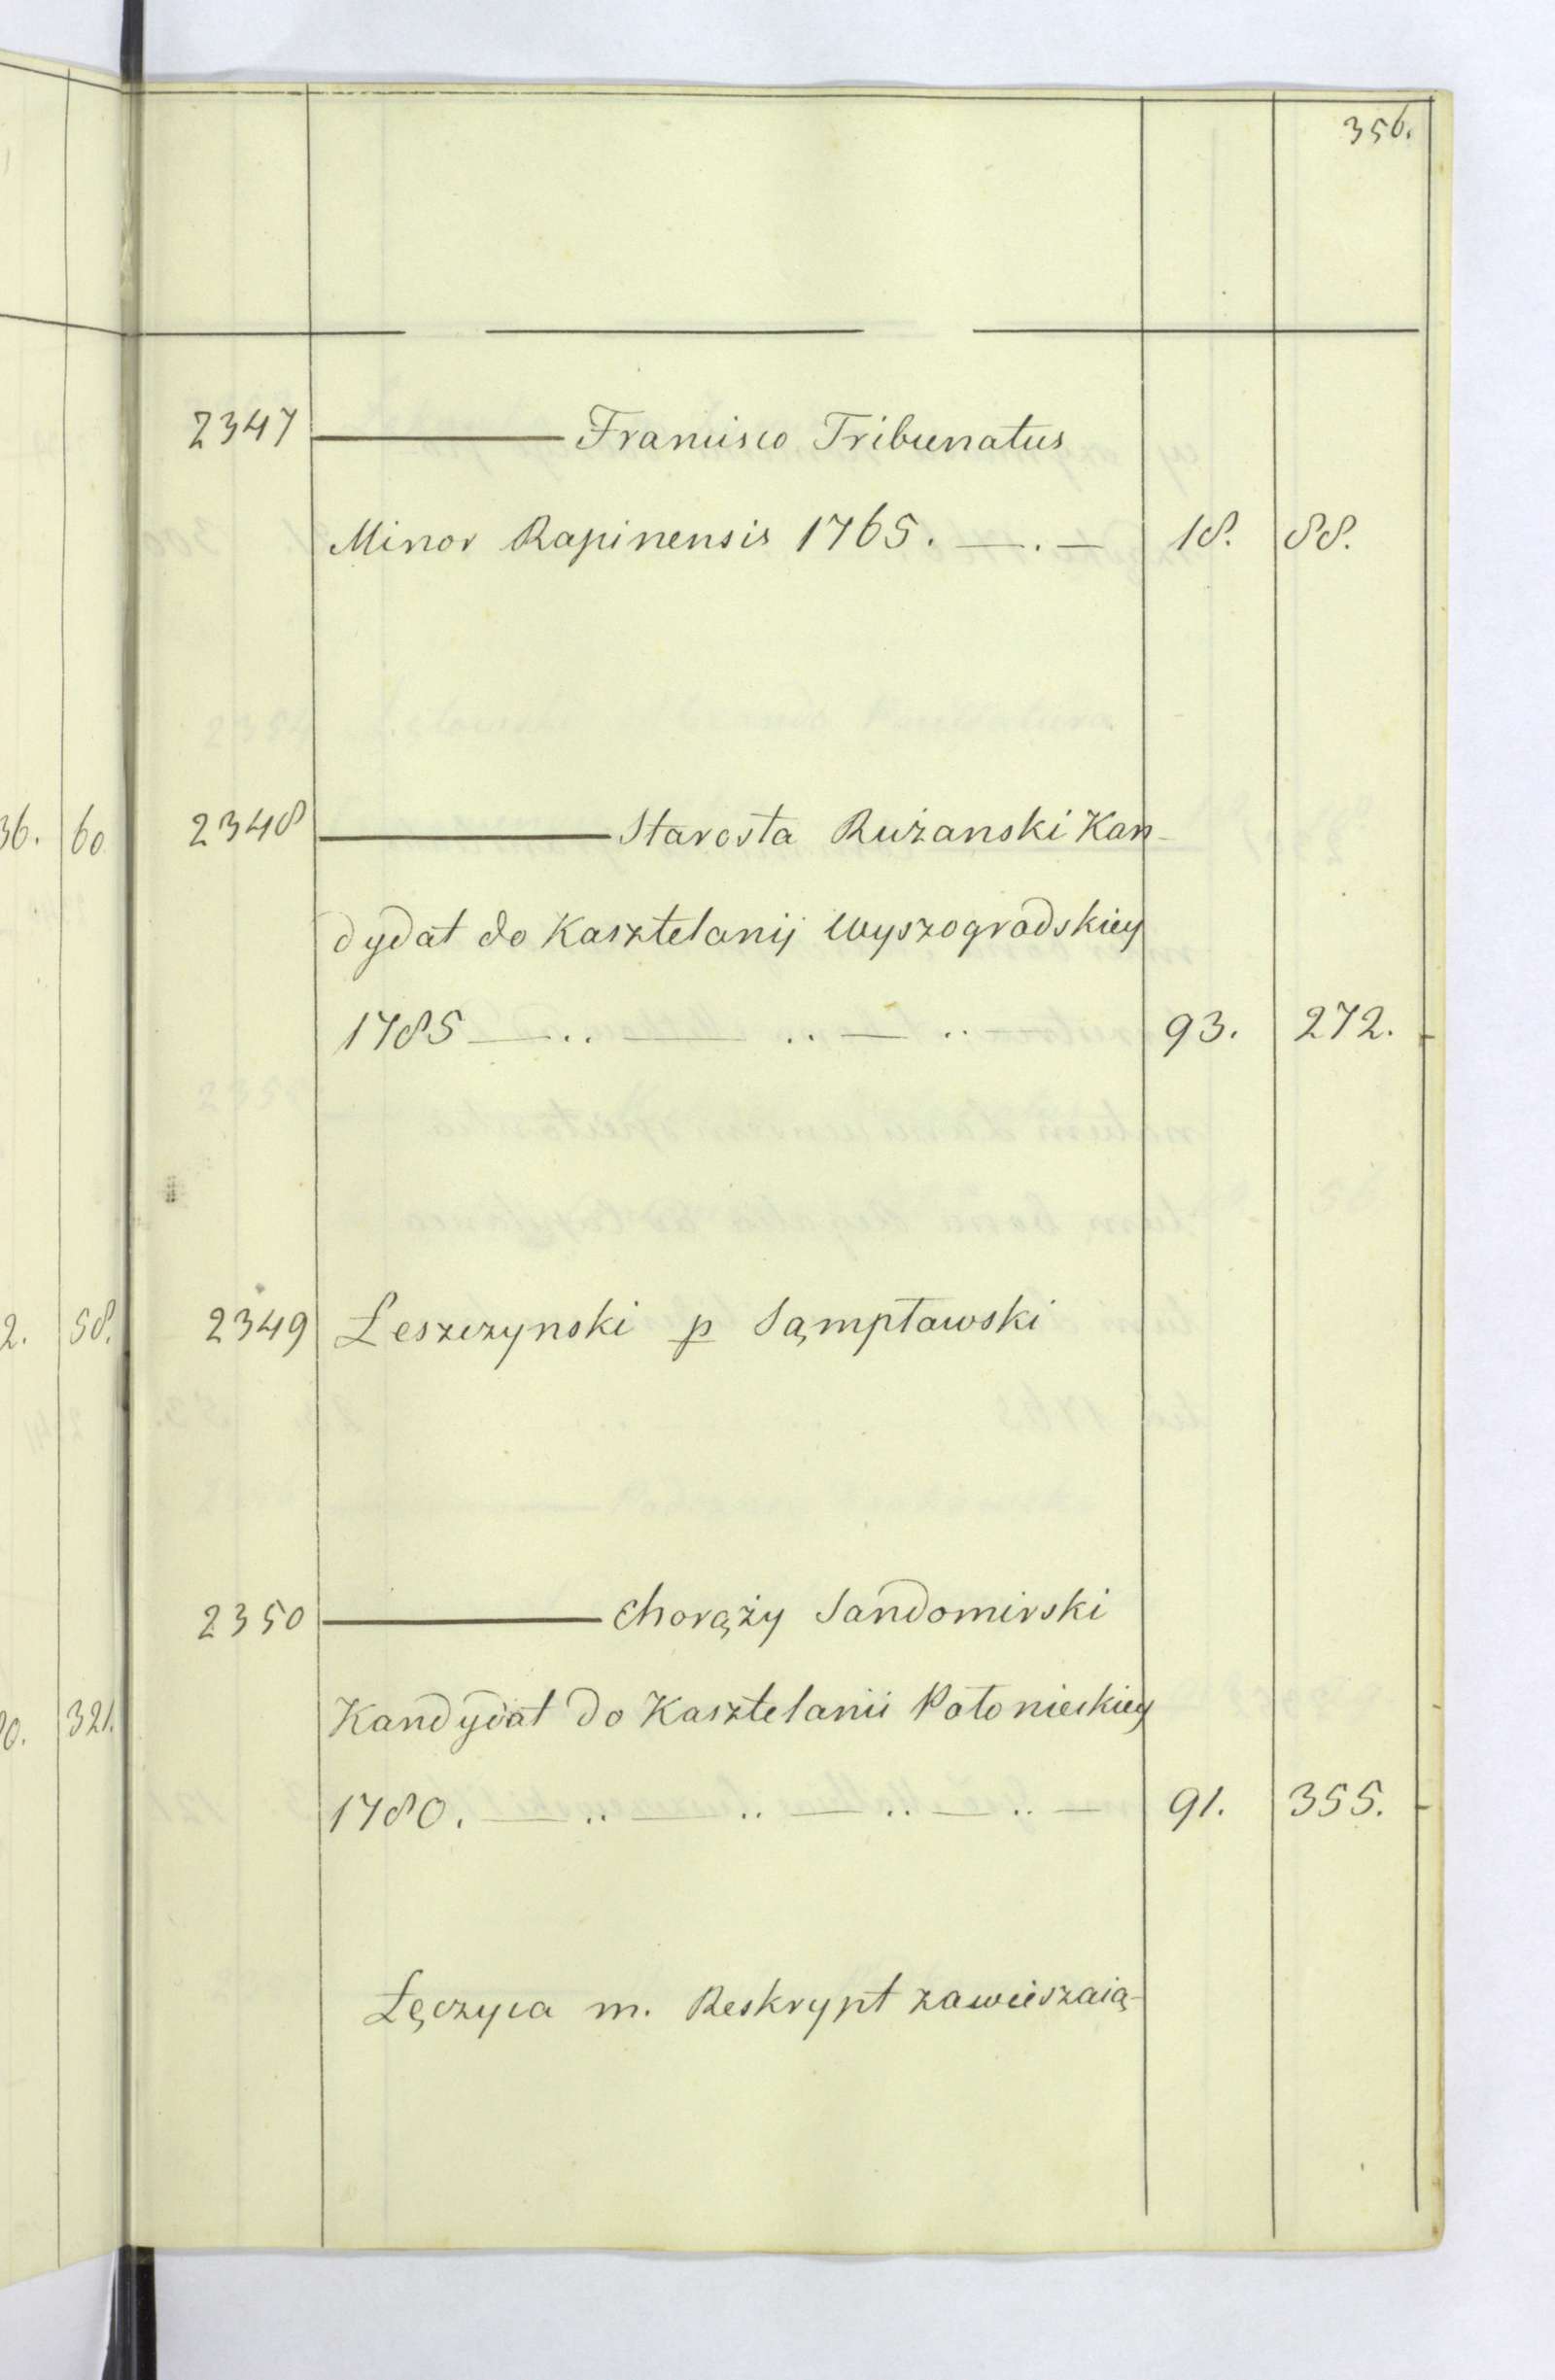 356.
2347 ——— Francisco Tribunatus
Minor Rapinensis 1765. —.— 18. 88.
36. 60
2348 ——— Starosta Rużanski Kan-
dydat do Kasztelanij Wyszogradskiey
1785 —..—..—.. 93. 272.
2. 58.
2349 Leszczynski p Sąmpławski
2350 ——— Chorąży Sandomirski
Kandydat do Kasztelanii Połonieckiey
0. 321.
1780. —..—..—..—..— 91. 355.
Łęczyca m. Reskrypt zawieszaią-